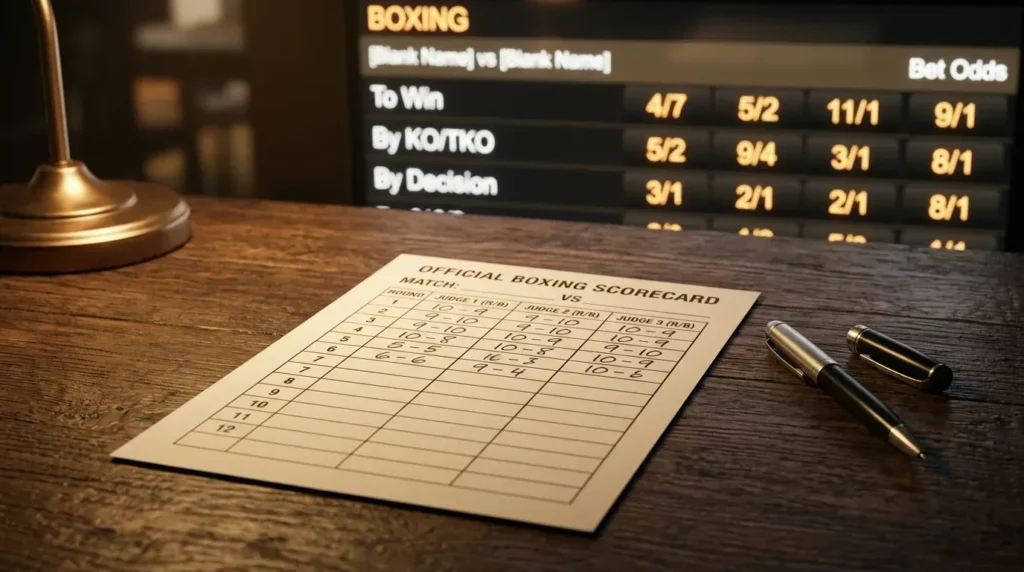 BOXING
[Blank Name] vs [Blank Name] Bet Odds
To Win 4/7 5/2 11/1 9/1
By KO/TKO 5/2 9/4 3/1 8/1
By Decision 3/1 2/1 2/1 8/1
OFFICIAL BOXING SCORECARD
MATCH: VS
ROUND JUDGE 1 (R/B) JUDGE 2 (R/B) JUDGE 3 (R/B)
1 10-9 9-10 10-9
2 9-10 10-9 10-9
3 9-10 9-10
4 10-8 10-8 10-9
5
6 6-6 9-4
7
8
9
10
11
12